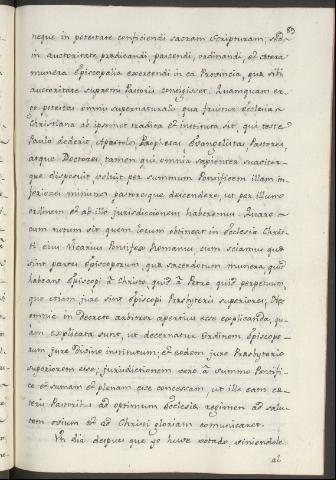 89
neque in potestate conficiendi sacram scripturam, sed
in auctoritate predicandi, pascendi, ordinandi, et cetera
munera Episcopalia exercendi in ea Provincia, qua sibi
auctoritate supremi Pastoris consignet. Quamquam er-
go potestas omnis supernaturalis qua fruitur Ecclesia
Christiana ab ipsomet tradita et instituta sit, qui teste
Paulo dederit, Apostolos, Prophetas, Evangelistas, Pastores,
atque Doctores, tamen qui omnia sapienter suaviter-
que disposuit voluit per summum Pontificem illam in
inferiores ministros pastoresque descendere, ut per illum
ordinem et ab illo jurisdictionem haberemus. Quare
cum notum sit quem locum obtineat in Ecclesia Chris-
ti eius Vicarius Pontifex Romanus cum sciamus quæ
sint partes Episcoporum, quæ sacerdotum munera quid
habeant Episcopi à Christo, quid à Petro, quid perpetuum,
quo etiam jure sint Episcopi Presbyteris superiores; Hec
omnia in Decreto arbitror apertius esse explicanda, qu
am explicata sunt, ut decernatur Ordinem Episcopo-
rum jure Divino institutum, et eodem jure Presbyterio
superiorem esse; jurisdictionem vero à summo Pontifi-
ce et sumam et plenam esse concessam, ut ille eam ce-
teris Pastoribus ad optimum Ecclesiæ regimen ad salu-
tem ovium et ad Christi gloriam comunicaret.
Un Dia despues que yo huve votado, viniendole
al